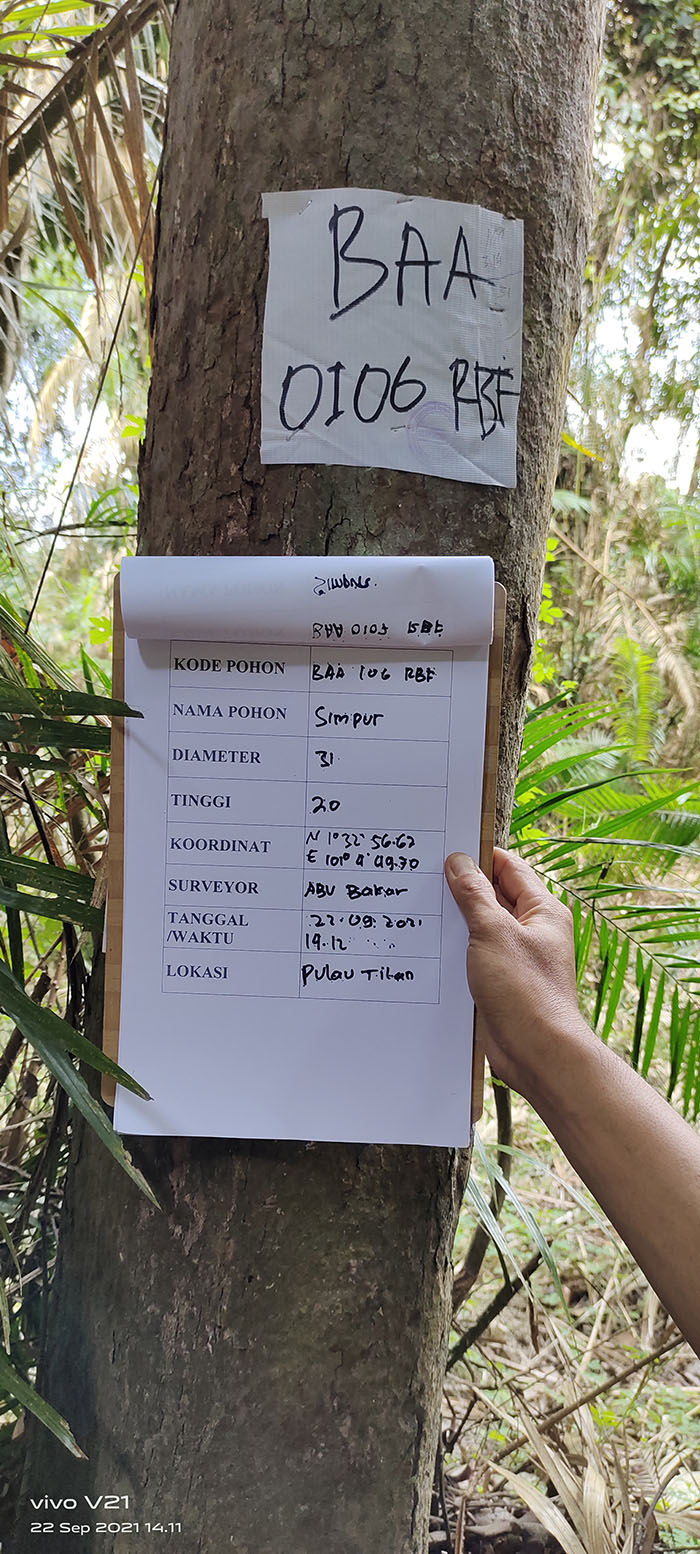 BAA
0106 RBF
KODE POHON BAA 106 RBF
NAMA POHON Simpur
DIAMETER 31
TINGGI 20
KOORDINAT N 1° 32' 56.62
E 101° 4' 49.70
SURVEYOR ABU Bakar
TANGGAL 22.09.2021
/WAKTU 14.12
LOKASI Pulau Tilan
vivo V21
22 Sep 2021 14.11